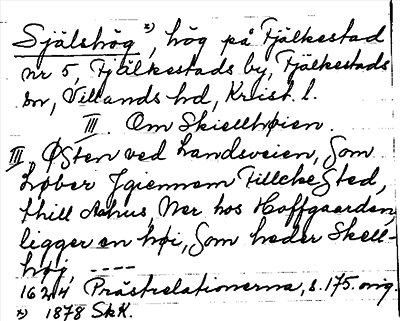 Själshög x), hög på Fjälkestad
nr 5, Fjälkestads by, Fjälkestads
sn, Villands hd, Krist. l.
III. Om Skiellhøien.
III, Østen ved Landsveien, Som
Løber Igiennem Fillcke Sted,
thill Aahus, Ner hos Hoffgaarden,
ligger en høi, Som heder Skell-
høj, ----
1624 Prästrelationerna, s. 175. orig.
x) 1878 SkK.